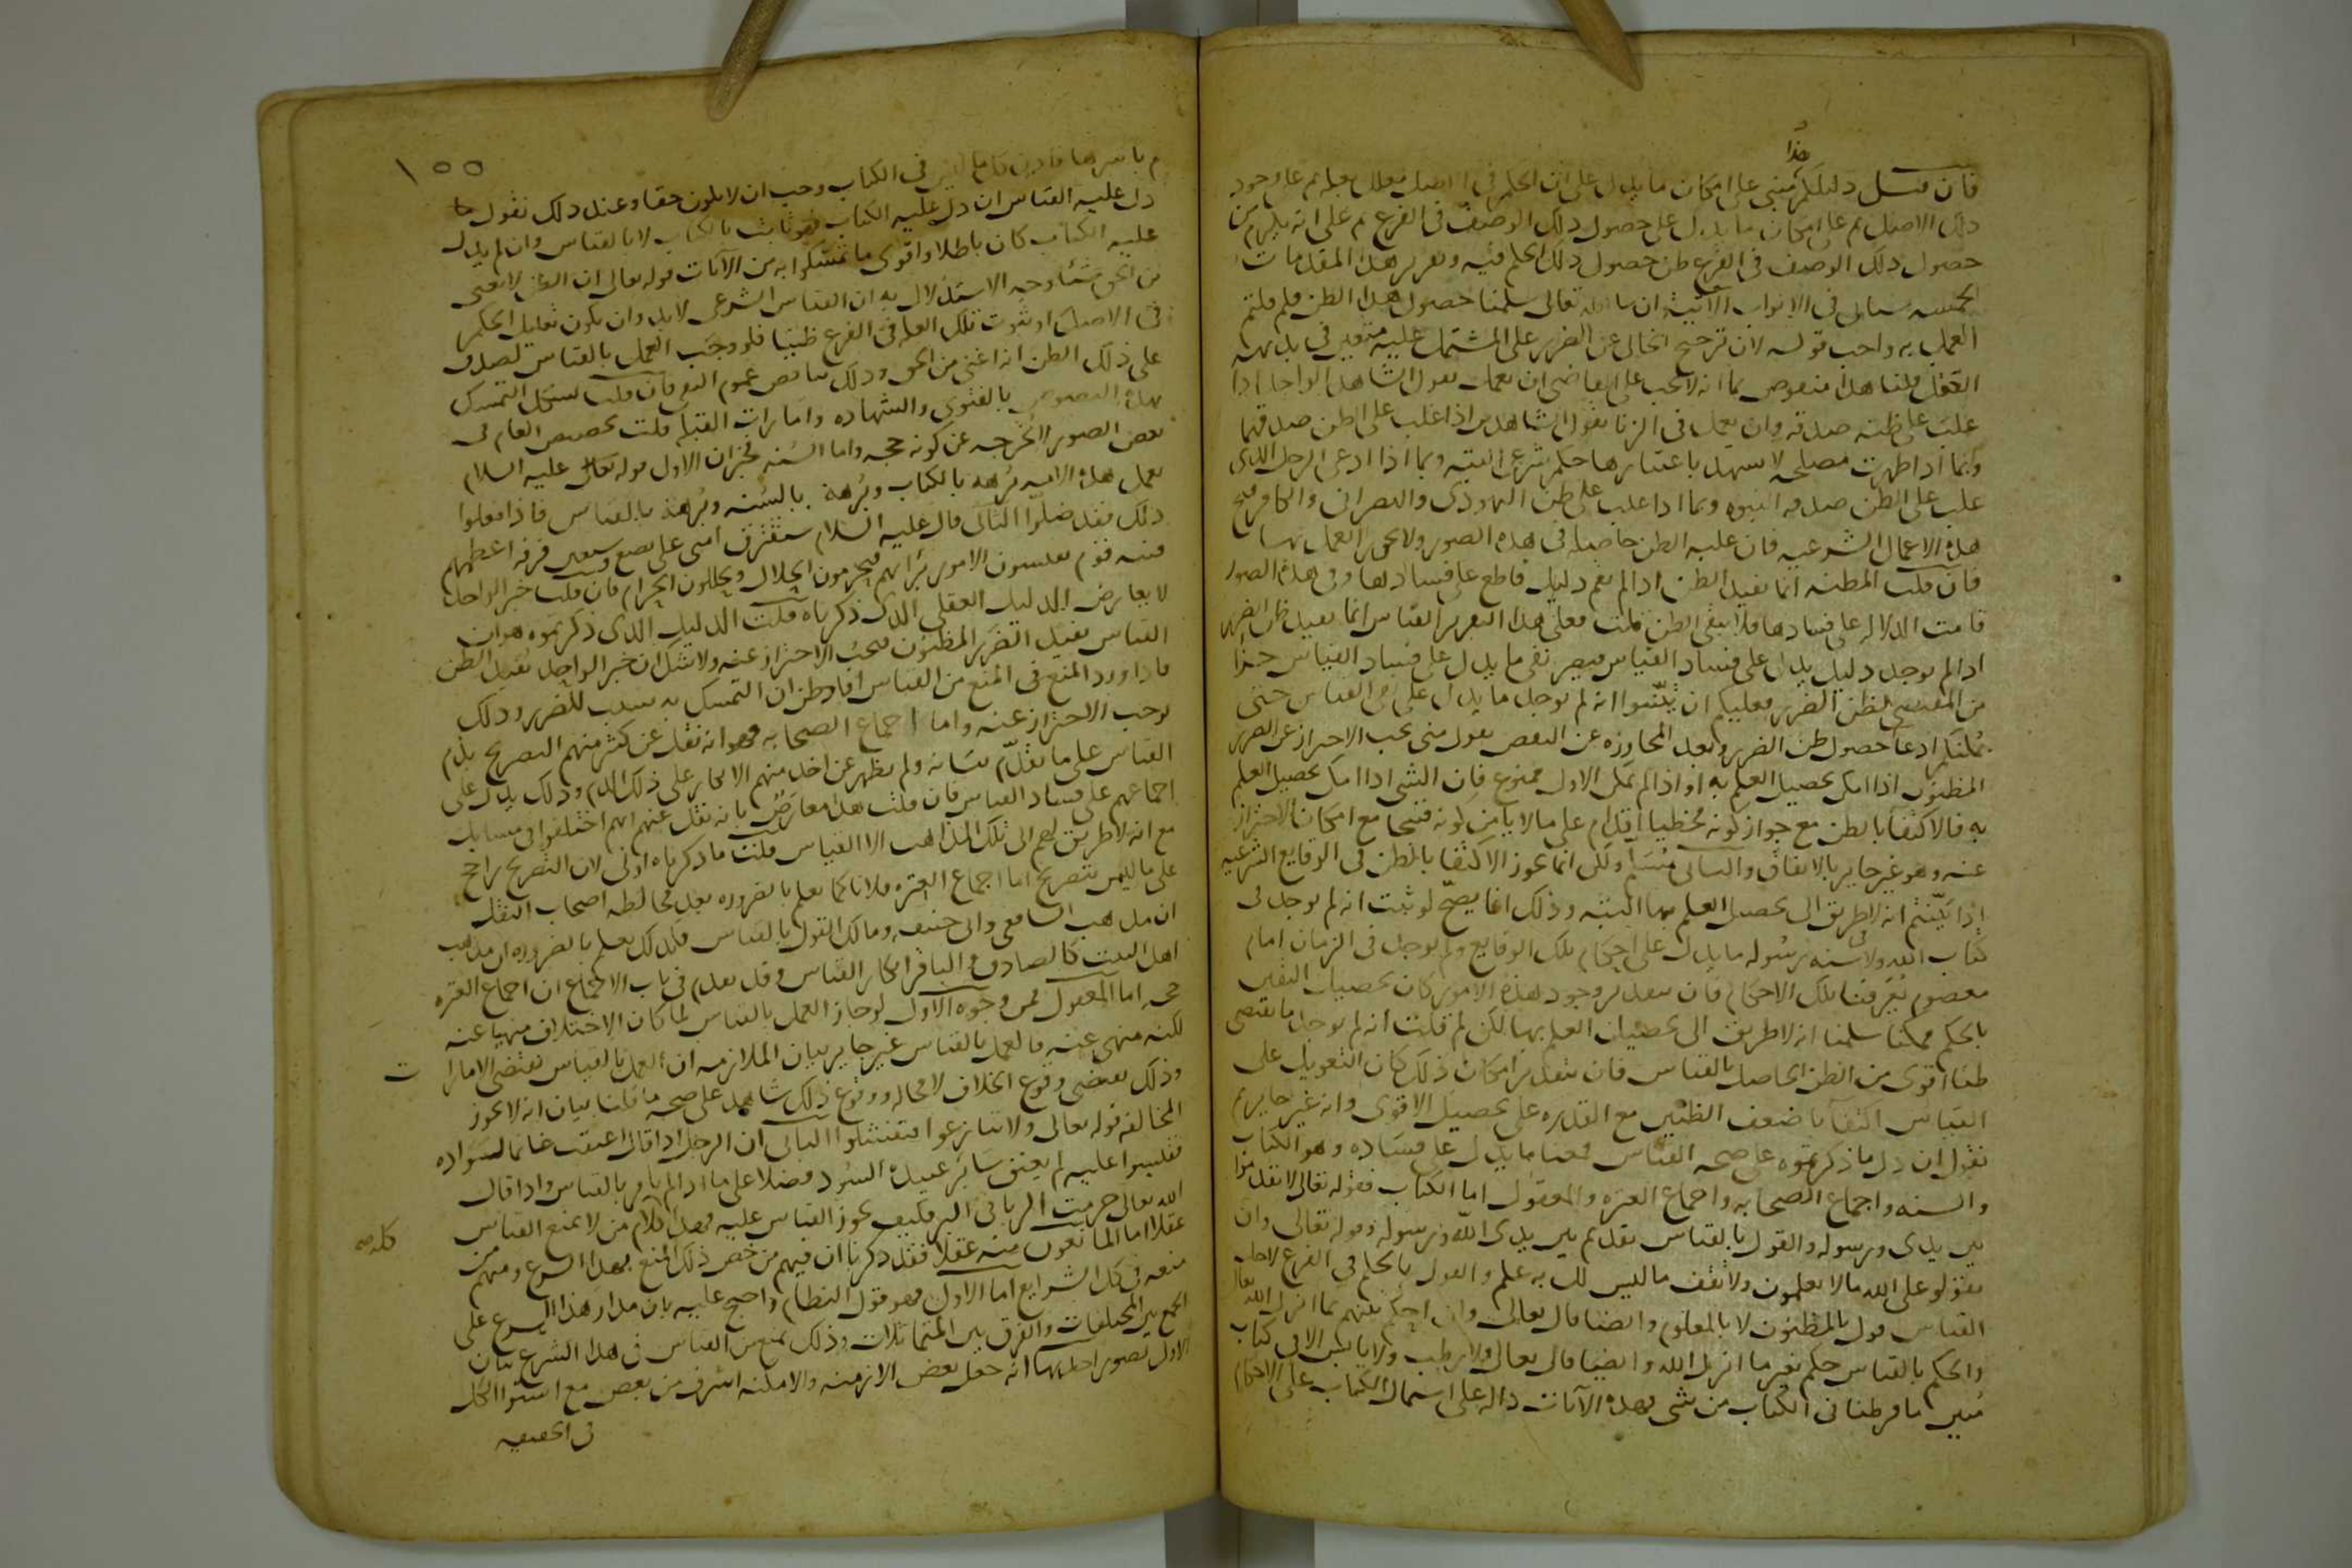 هذا
فان قيل دليلكم مبنى على امكان ما يدل على ان الحكم فى الاصل معلل بعلة ثم على وجود
ذلك الاصل ثم على امكان ما يدل على حصول ذلك الوصف فى الفرع ثم على انه يلزم من
حصول ذلك الوصف فى الفرع ظن حصول ذلك الحكم فيه وتقرير هذه المقدمات
الخمسه سياتى فى الابواب الآتيه ان شا الله تعالى سلمنا حصول هذا الظن فلم قلتم
العمل به واجب قوله لان ترجيح الخالى عن الضرر على المشتمل عليه متعين فى بديهه
العقل قلنا هذا منقوص بما انه لا يجب على القاضى ان يعمل بقول الشاهد الواحد اذا
غلب على ظنه صدقه وان يعمل فى الزنا بقول الشاهدين اذا غلب على الظن صدقهما
وبما اذا ظهرت مصلحه لا يشهد باعتبارها حكم شرعى البته وبما اذا ادعى الرجل الذى
غلب على الظن صدقه النبوه وبما اذا غلب على ظن اليهودى والنصرانى والكافر قبح
هذه الاعمال الشرعيه فان غلبه الظن حاصله فى هذه الصور ولا يجوز العمل بها
فان قلت المظنه انما تفيد الظن اذا لم يقم دليل قاطع على فسادها وفى هذه الصور
قامت الدلاله على فسادها فلا يبقى الظن قلت فعلى هذا التقرير القياس انما يفيد ظن الضرر
اذا لم يوجد دليل يدل على فساد القياس فيصير نفى ما يدل على فساد القياس جزأ
من المقتضى لظن الضرر فعليكم ان تبينوا انه لم يوجد ما يدل على القياس حتى
يمكنكم ادعا حصول ظن الضرر وبعد المجاوزه عن النقص نقول متى يجب الاحتراز عن الضرر
المظنون اذا امكن تحصيل العلم به او اذا لم يمكن الاول ممنوع فان الشى اذا امكن تحصيل العلم
به فالاكتفا بالظن مع جواز كونه مخطيا اقدام على ما لا يامن كونه قبيحا مع امكان الاحتراز
عنه وهو غير جايز بالاتفاق والثانى مسلم ولكن انما يجوز الاكتفا بالظن فى الوقايع الشرعيه
اذا بينتم انه لا طريق الى تحصيل العلم بها البته وذلك انما يصح لو ثبت انه لم يوجد فى
كتاب الله ولا فى سنه رسوله ما يدل على احكام تلك الوقايع ولم يوجد فى الزمان امام
معصوم يعرفنا تلك الاحكام فان بتقدير وجود هذه الامور كان تحصيل اليقين
بالحكم ممكنا سلمنا انه لا طريق الى تحصيل العلم بها لكن لم قلت انه لم يوجد ما يقتضى
ظنا اقوى من الظن الحاصل بالقياس فان بتقدير امكان ذلك كان التعويل على
القياس اكتفآ باضعف الظنين مع القدره على تحصيل الاقوى وانه غير جايز ثم
نقول ان دل ما ذكرتموه على صحه القياس فمعنا ما يدل على فساده وهو الكتاب
والسنه واجماع الصحابه واجماع العتره والمعقول اما الكتاب فقوله تعالى لا تقدموا
بين يدى ورسوله والقول بالقياس تقديم بين يدى الله ورسوله وقوله تعالى وان
تقولوا على الله ما لا تعلمون ولا تقف ما ليس لك به علم والقول بالحكم فى الفرع لاجل
القياس قول بالمظنون لا بالمعلوم وايضا قال تعالى وان احكم بينهم بما انزل الله
والحكم بالقياس حكم بغير ما انزل الله وايضا قال تعالى ولا رطب ولا يابس الا فى كتاب
مبين ما فرطنا فى الكتاب من شى فهذه الآيات داله على اشتمال الكتاب على الاحكام
١٥٥
باسرها فى الكتاب وجب ان لا يكون حقا وعند ذلك نقول ما
دل عليه القياس ان دل عليه الكتاب فهو ثابت بالكتاب لا بالقياس وان لم يدل
عليه الكتاب كان باطلا واقوى ما تمسكوا به من الآيات قوله تعالى ان الظن لا يغنى
من الحق شيئا وجه الاستدلال به ان القياس الشرعى لا بد وان يكون تعليل الحكم
فى الاصل او ثبوت تلك العله فى الفرع ظنيا فلو وجب العمل بالقياس لصدق
على ذلك الظن انه اغنى من الحق وذلك يناقض عموم النفى فان قلت يشكل التمسك
بهذه النصوص بالفتوى والشهاده وامارات القبله قلت تخصيص العام فى
بعض الصور لا يخرجه عن كونه حجه واما السنه فخبران الاول قوله عليه السلام
تعمل هذه الامه برهه بالكتاب وبرهة بالسنه وبرهة بالقياس فاذا فعلوا
ذلك فقد ضلوا الثانى قال عليه السلام ستفترق امتى على بضع وسبعين فرقه اعظمهم
فتنه قوم يقيسون الامور برأيهم فيحرمون الحلال ويحللون الحرام فان قلت خبر الواحد
لا يعارض الدليل العقلى الذى ذكرناه قلت الدليل الذى ذكرتموه هو ان
القياس يفيد الضرر المظنون فيجب الاحتراز عنه ولا شك ان خبر الواحد يفيد الظن
فاذا ورد المنع فى المنع من القياس افاد ظن ان التمسك به سبب للضرر وذلك
يوجب الاحتراز عنه واما اجماع الصحابه فهو انه نقل عن كثير منهم التصريح بذم
القياس على ما تقدم بيانه ولم يظهر عن احد منهم الانكار على ذلك الذم وذلك يدل على
اجماعهم على فساد القياس فان قلت هذا معارض بانه نقل عنهم انهم اختلفوا فى مسايل
مع انه لا طريق لهم الى تلك المذاهب الا القياس قلت ما ذكرناه اولى لان التصريح راجح
على ما ليس بتصريح اما اجماع العتره فلانا كما نعلم بالضروره بعد مخالطه اصحاب النقل
ان مذهب الشافعى وابى حنيفه ومالك القول بالقياس فكذلك نعلم بالضروره ان مذهب
اهل البيت كالصادق والباقر انكار القياس وقد تقدم فى باب الاجماع ان اجماع العتره
حجه اما المعقول فمن وجوه الاول لو جاز العمل بالقياس لما كان الاختلاف منهيا عنه
لكنه منهى عنه فالعمل بالقياس غير جايز بيان الملازمه ان العمل بالقياس يقتضى الامارا
ت
وذلك يقتضى وقوع الخلاف لا محاله ووقوع ذلك شاهد على صحه ما قلنا بيان انه لا يجوز
المخالفه قوله تعالى ولا تنازعوا فتفشلوا الثانى ان الرجل اذا قال اعتقت غانما لسواده
فقيسوا عليه لم يعتق ساير عبيده السود فضلا على ما اذا لم يامر بالقياس واذا قال
الله تعالى حرمت الربا فى البر فكيف يجوز القياس عليه فهذا كلام من لا يمنع القياس
عقلا اما المانعون منه عقلا فقد ذكرنا ان فيهم من خص ذلك المنع بهذا الشرع ومنهم من
منعه فى كل الشرايع اما الاول فهو قول النظام واحتج عليه بان مدار هذا الشرع على
الجمع بين المختلفات والفرق بين المتماثلات وذلك يمنع من القياس فى هذا الشرع بيان
الاول بصور احدها انه جعل بعض الازمنه والامكنه اشرف من بعض مع استوا الكل
فى الحقيقه